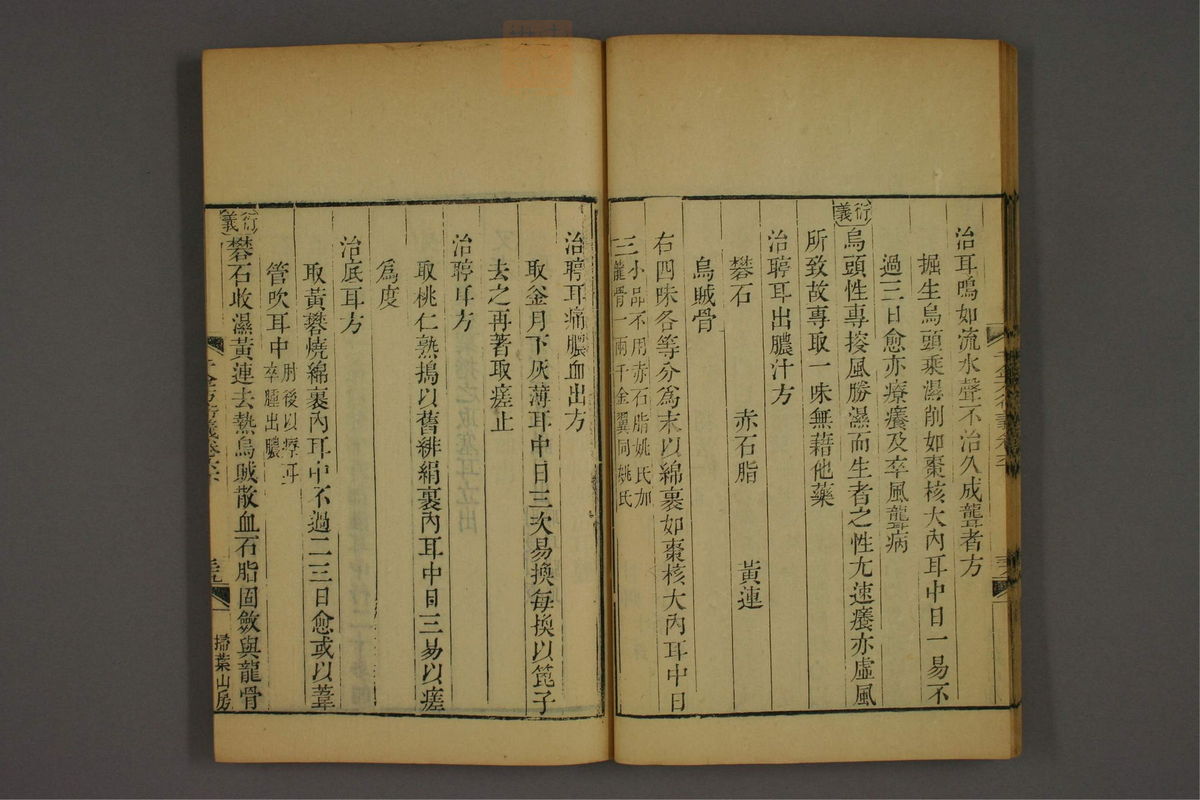 治耳鳴如流水聲不治久成聾者方
掘生烏頭乘濕削如棗核大內耳中日一易不
過三日愈亦療癢及卒風聾病
衍義
烏頭性專搜風勝濕而生者之性尢速癢亦虛風
所致故專取一味無藉他藥
治聤耳出膿汁方
礬石 赤石脂 黃連
烏賊骨
右四味各等分爲末以綿裹如棗核大內耳中日
三
小品不用赤石脂姚氏加
龍骨一兩千金翼同姚氏
治聤耳痛膿血出方
取釜月下灰薄耳中日三次易換每換以箆子
去之再著取瘥止
治聤耳方
取桃仁熟搗以舊緋絹裹內耳中日三易以瘥
爲度
治底耳方
取黃礬燒綿裹內耳中不過二三日愈或以葦
管吹耳中
肘後以療耳
卒腫出膿
衍義
礬石收濕黃連去熱烏賊散血石脂固斂與龍骨
千金方衍義卷六
三九
掃葉山房